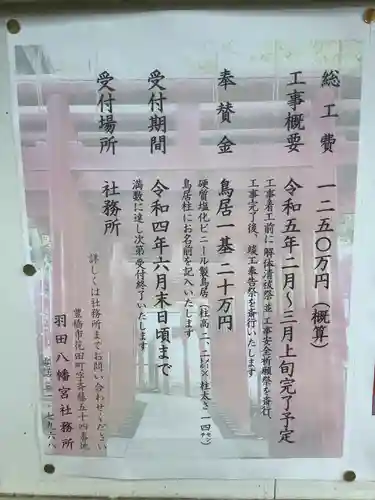 総工費 一二五〇万円（概算）
工事概要 令和五年二月～三月上旬完了予定
工事着工前に解体清祓祭並工事安全祈願祭を斎行、
工事完了後、竣工奉告祭を斎行いたします
奉賛金 鳥居一基二十万円
硬質塩化ビニール製鳥居（柱高二、二㍍×柱太さ一四㌢）
鳥居柱にお名前を記入いたします
受付期間 令和四年六月末日頃まで
満数に達し次第受付終了いたします
受付場所 社務所
詳しくは社務所までお問い合わせください
豊橋市花田町字斉藤五十四番地
羽田八幡宮社務所